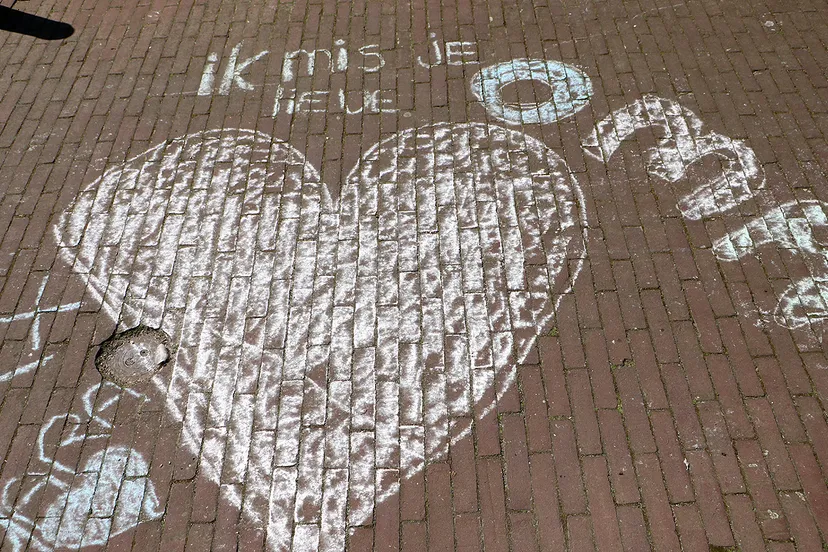 ik mis je
lieve
oma